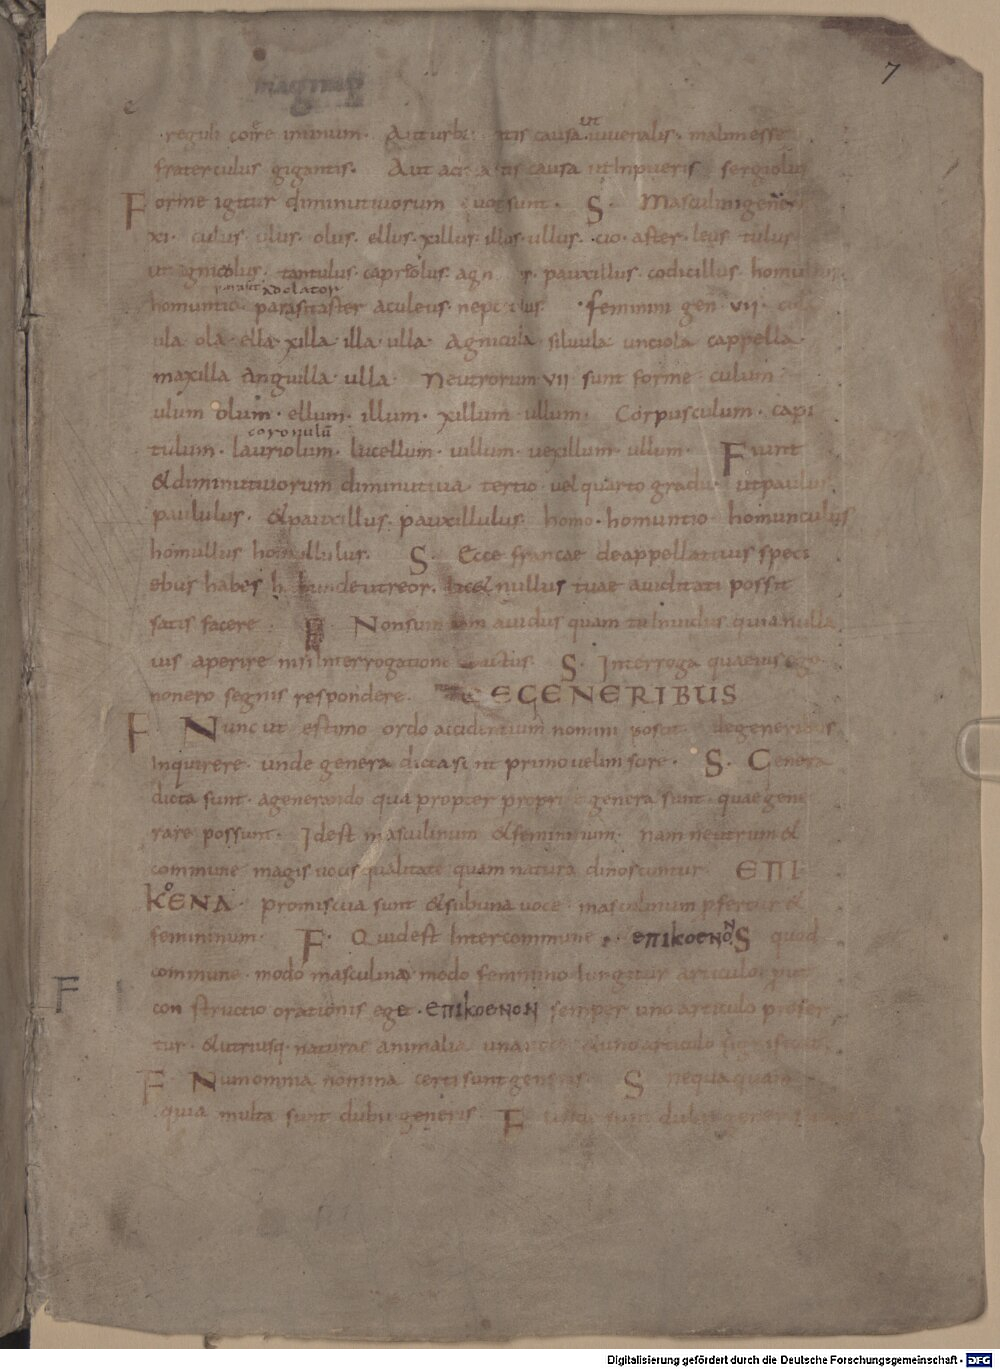 7
reguli coire minimum. Aut urba nitatis causa ut iuvenalis. malim esse
fraterculus gigantis. Aut causa ut inpueris sergiolus
F orme igitur diminutivorum quot sunt. S. Masculini generis
xi. culus. ulus. olus. ellus. xillus. illus. ullus. cio. aster. leus. tulus
ut igniculus. tantulus. capreolus. pauxillus. codicillus. homullus.
adolator
homuntio. parasitaster aculeus. nepotulus. feminini gen. vii. cula
ula. ola. ella. xilla. illa. ulla. Agnicula. silvula. unciola. cappella.
maxilla. anguilla. ulla. Neutrorum vii sunt forme. culum.
ulum. olum. ellum. illum. xillum. ullum. Corpusculum. capi
coronulū
tulum. lauriolum. lucellum. villum. vexillum. ullum. F Fiunt
& diminutivorum diminutiva tertio vel quarto gradu. ut paulus
paululus. & pauxillus. pauxillulus. homo. homuntio homunculus
homullus homullulus. S. Ecce francae de appellativis speci
ebus habes unde ut reor. licet nullus tuae aviditati possit
satis facere. F. Non sum tam avidus quam tu invidus. quia nulla
vis aperire nisi interrogatione S. Interroga quae vis ego
non ero segnis respondere. DE GENERIBUS
F Nunc ut estimo ordo accidentium nomini poscit de generibus
inquirere. unde genera dicta sint primo velim scire. S. Genera
dicta sunt. a generando quapropter proprie genera sunt. quae gene
rare possunt. Idest masculinum & femininum. nam neutrum &
commune magis vocis qualitate quam natura dinoscuntur. ΕΠΙ
ΚΟΕΝΑ. promiscua sunt & sub una voce. masculinum pfertur &
femininum. F. Quid est Inter commune. & επικοενον S quod
commune. modo masculino modo feminino iungitur articulo. put
F constructio orationis eget. επικοενον semper uno articulo profer
tur. & utriusq. naturae animalia una voce & uno articulo significat
F. Num omnia nomina certi sunt generis. S nequaquam
quia multa sunt dubii generis. F sunt dubii generis
Digitalisierung gefördert durch die Deutsche Forschungsgemeinschaft - DFG